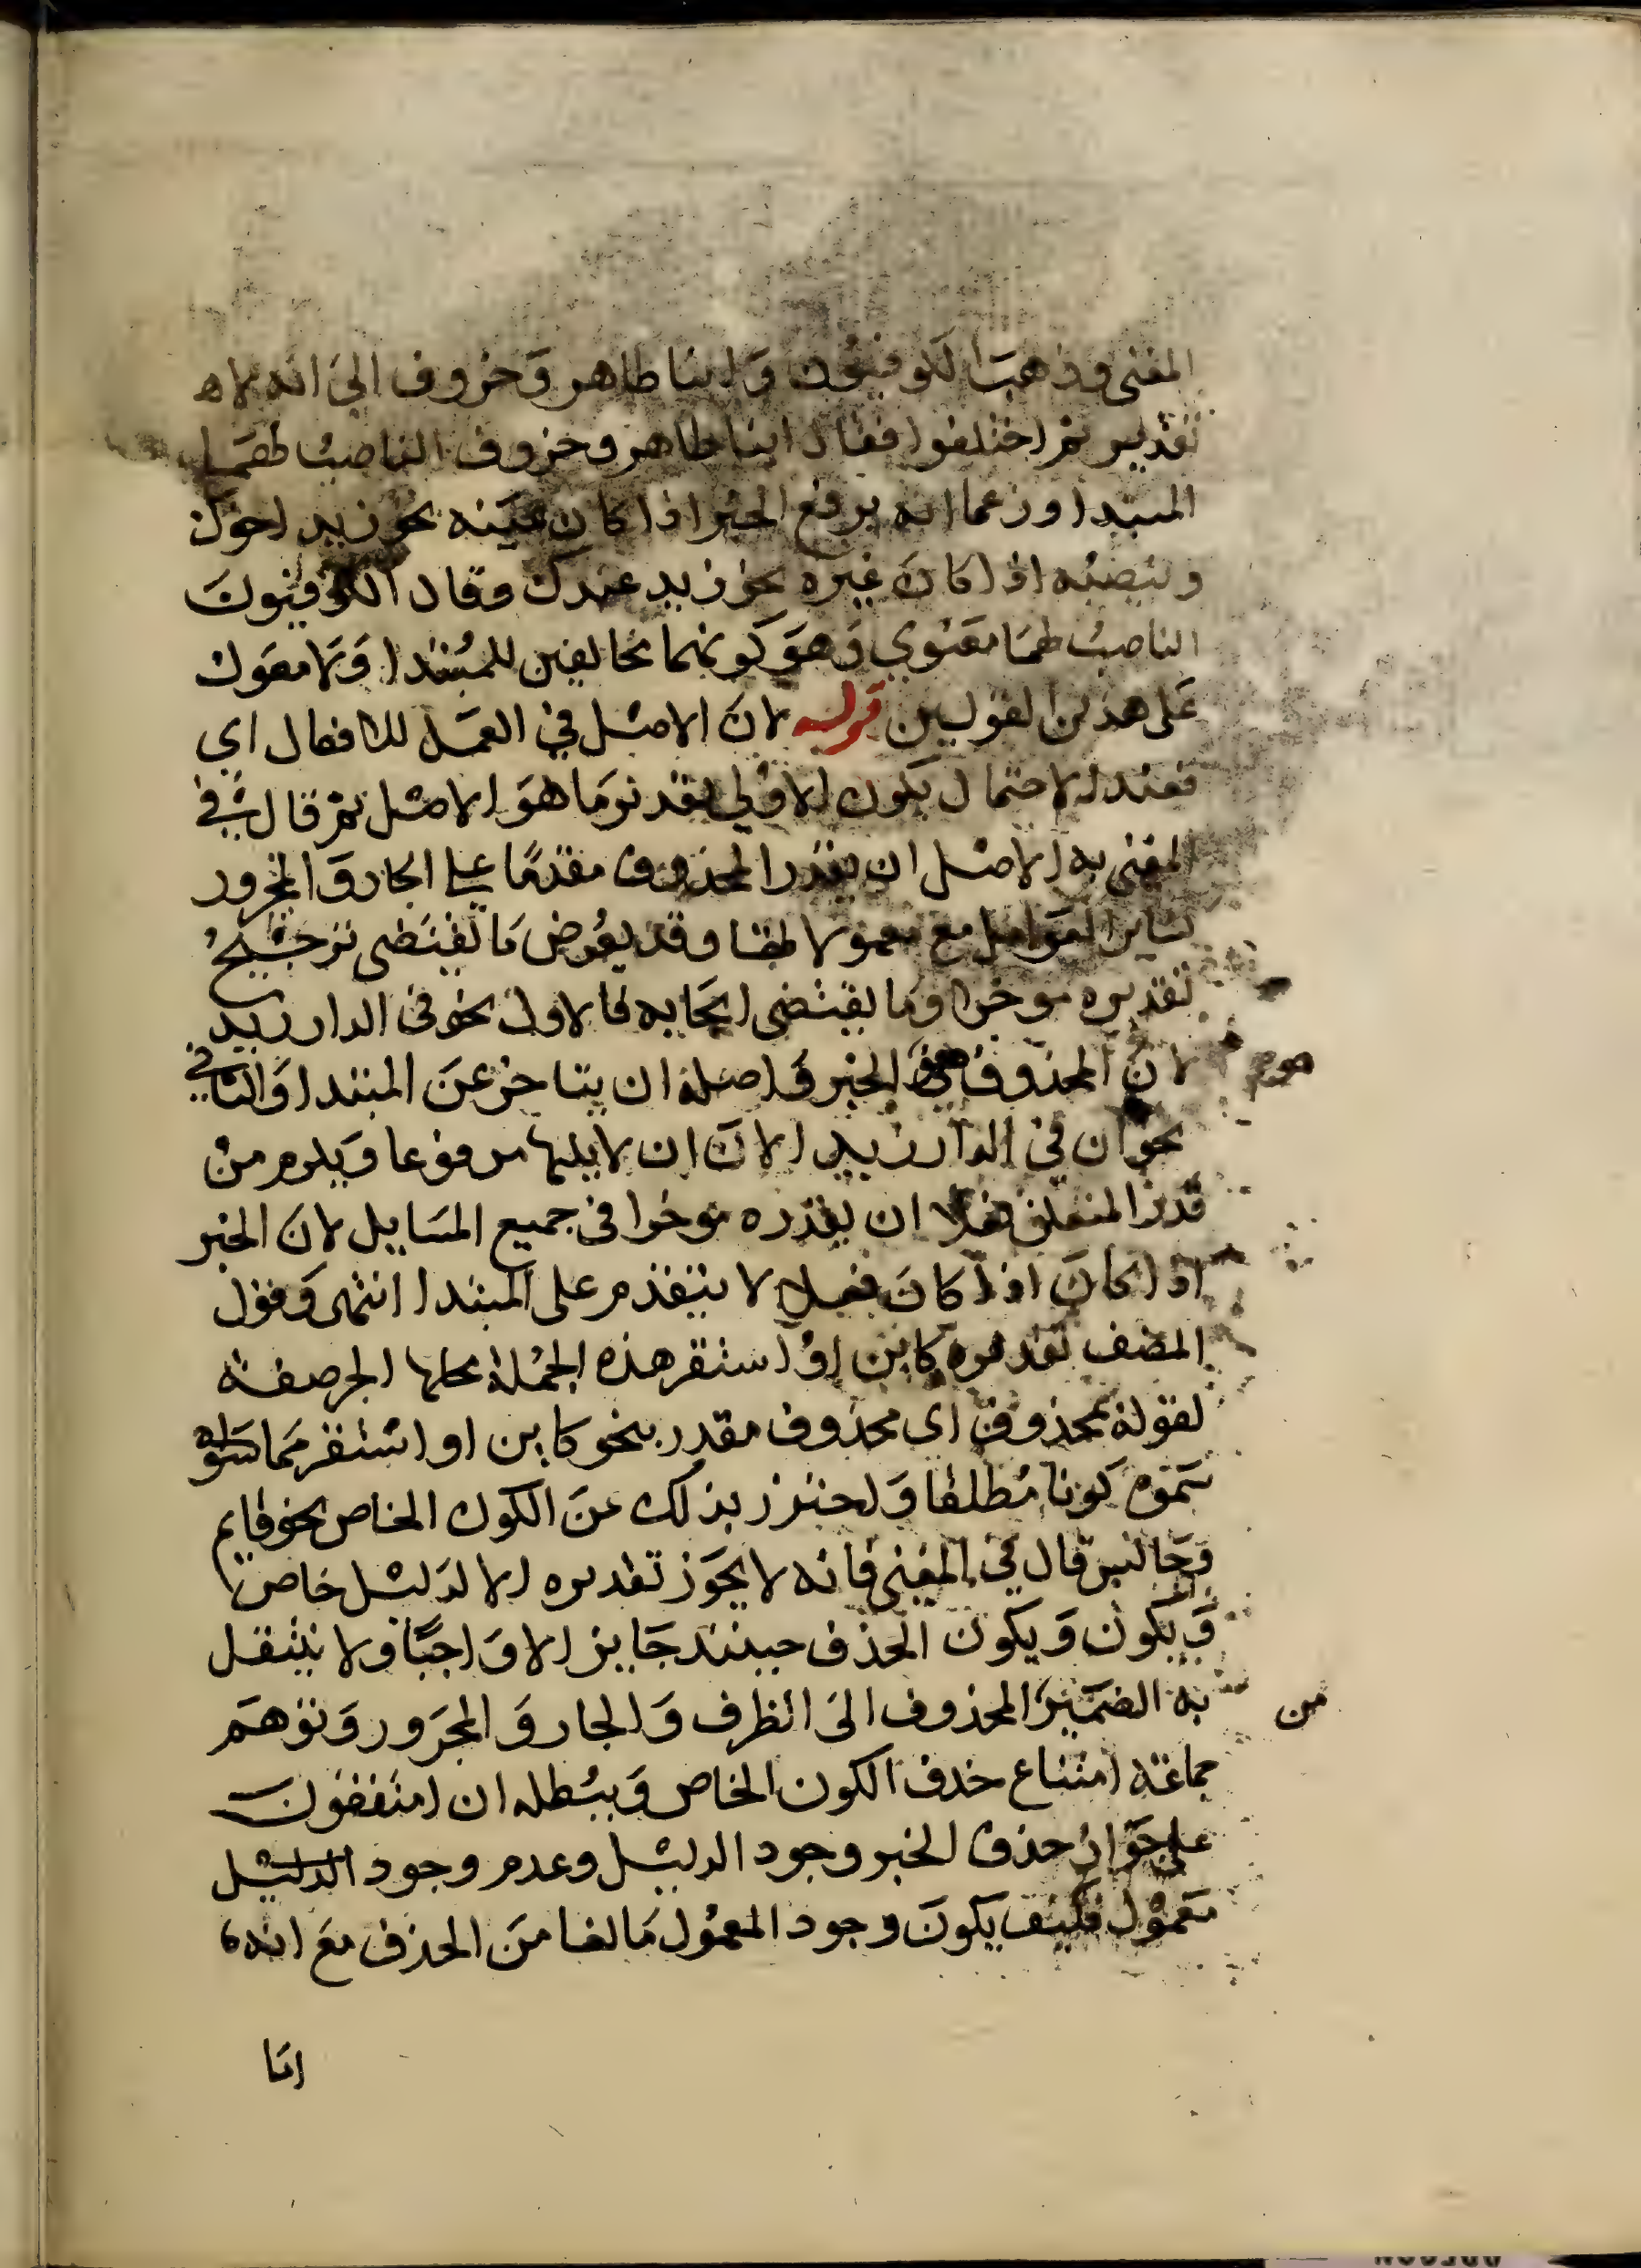 المغنى وذهب الكوفيون وابنا طاهر وخروف الى انه لا
تقدير ثم اختلفوا فقال ابنا طاهر وخروف الناصب لهما
المبتدا وزعما انه يرفع الخبر اذا كان عينه نحو زيد اخوك
وينصبه اذا كان غيره نحو زيد عندك وقال الكوفيون
الناصب لهما معنوي وهو كونهما مخالفين للمبتدا ولا معول
على هذين القولين قوله لان الاصل في العمل للافعال اي
فعند الاحتمال يكون الاولى تقدير ما هو الاصل ثم قال في
المغنى به الاصل ان يقدر المحذوف مقدما على الجار والمجرور
كساير العوامل مع معمولاتها وقد يعرض ما يقتضى ترجيح
تقديره موخرا وما يقتضى ايجابه فالاول نحو فى الدار زيد
لان المحذوف هو الخبر واصله ان يتاخر عن المبتدا والثاني
نحو ان في الدار زيدا لان ان لا يليها مرفوعا ويلزم من
قدر المتعلق فعلا ان يقدره موخرا فى جميع المسايل لان الخبر
اذا كان اذا كان فعلا لا يتقدم على المبتدا انتهى وقول
المصنف تقديره كاين او استقر هذه الجملة محلها الجر صفة
لقوله بمحذوف اى محذوف مقدر بنحو كاين او استقر مما
كونا مطلقا واحترز بذلك عن الكون الخاص نحو قايم
وجالس قال في المغنى فانه لا يجوز تقديره الا لدليل خاص
ويكون ويكون الحذف حينئذ جايز الا واجبا ولا ينتقل
من به الضمير المحذوف الى الظرف والجار والمجرور وتوهم
جماعة امتناع حذف الكون الخاص ويبطله ان امتفقون
على جواز حذف الخبر وجود الدليل وعدم وجود الدليل
معمول فكيف يكون وجود المعمول مانعا من الحذف مع انه
انا